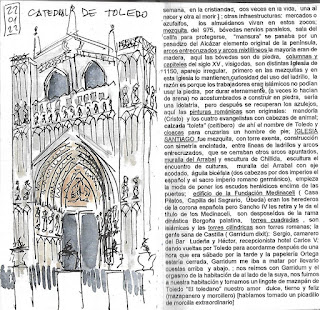 22
01
22
CATEDRAL DE TOLEDO
semana, en la cristiandad, dos veces en la vida, una al
nacer y otra al morir ] ; otras infraestructuras: mercados o
azufaifos, los almuédanos vivían en estos zocos;
mezquita, del 975, bóvedas nervios paralelos, sala del
califa para protegerse, "mansura" se pasaba por un
pasadizo del Alcázar elemento original de la península,
arcos entrecruzados y arcos mixtilíneos la mayoría eran de
madera, aquí las bóvedas son de piedra, columnas y
capiteles del siglo XIV, visigodos, son distintas Iglesia de
1150, aparejo irregular, primero en las mezquitas y en
esta iglesia lo mantienen curiosidad del uso del ladrillo, la
razón es porque los trabajadores eran islámicos no podían
usar la piedra, por durar eternamente, (a veces lo hacían
de arena) no acostumbrados a construir en piedra, sería
una idolatría, pero después se recuperan los azulejos,
aquí las pinturas románicas son originales: mandorla
(Cristo) y los cuatro evangelistos con cabezas de animal;
calzada "toleta" (celtíbero) de ahí el nombre de Toledo y
cloacas para cruzarlas un hombre de pie; IGLESIA
SANTIAGO fue mezquita, con torre exenta, construcción
con simetría enchintada, entre líneas de ladrillos y arcos
entrecruzados, que se cerraban otros arcos apuntados,
muralla del Arrabal y escultura de Chillida, escultura el
encuentro de culturas, muralla del Arrabal con eje
acodado, águila bicéfala (dos cabezas por dos imperios el
español y el sacro imperio romano germánico), empieza
la moda de poner los escudos heráldicos encima de las
puertas; edificio de la Fundación Medinaceli ( Casa
Pilatos, Capilla del Sagrado, Úbeda) eran los herederos
de la corona española pero Sancho IV les retira y le da el
título de los Medinaceli, son desposeídos de la rama
dinástica Borgoña palatina, torres cuadradas, son
islámicas y las torres cilíndricas son torres romanas; la
gente sana de Castilla ( Garridum dixit): Sergio, camarero
del Bar Ludeña y Héctor, recepcionista hotel Carlos V;
dando vueltas por Toledo para acordarme después de una
hora que era sábado por la tarde y la papelería Ortega
estaría cerrada, Garridum me iba a matar por llevarlo
cuestas arriba y abajo. ; nos reímos con Garridum y el
orgasmo de la habitación de al lado de la suya, nos fuimos
a nuestra habitación y tomamos un lingote de mazapán de
Toledo "El toledano" nuestro amor dulce, tierno y feliz
(mazapanero y morcilero) [habíamos tomado un picadillo
de morcilla extraordinario]